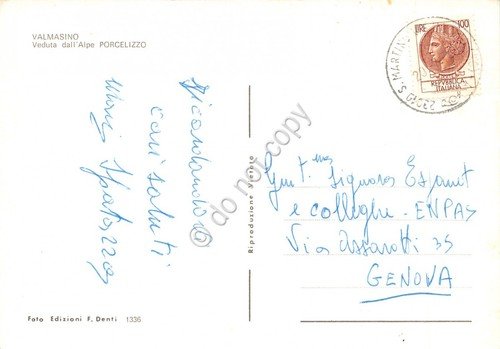 VALMASINO
Veduta dall'Alpe PORCELIZZO
LIRE 100
REPVBBLICA
ITALIANA
S. MARTINO
23010
Ricordandovi
cari saluti
Gent.ma Signora
e colleghe - ENPAS
Via Assarotti 35
GENOVA
Riproduzione vietata
Foto Edizioni F. Denti 1336
do not copy